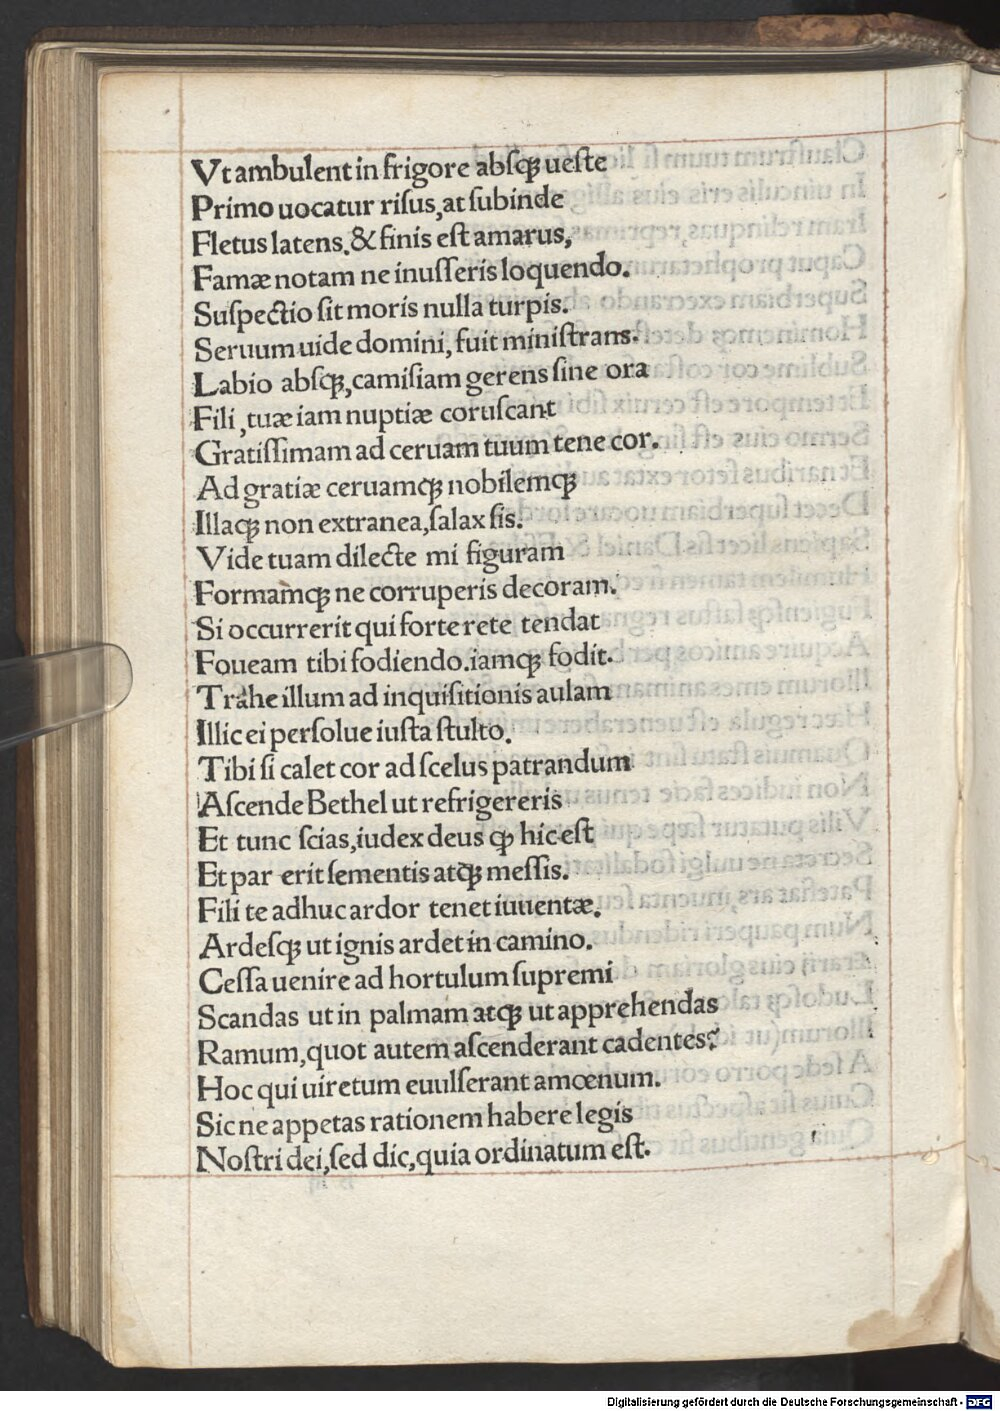 Vt ambulent in frigore abſqꝫ ueſte
Primo uocatur riſus, at ſubinde
Fletus latens. & finis eſt amarus,
Famæ notam ne inuſſeris loquendo.
Suſpectio ſit moris nulla turpis.
Seruum uide domini, fuit miniſtrans.
Labio abſqꝫ, camiſiam gerens ſine ora
Fili, tuæ iam nuptiæ coruſcant
Gratiſſimam ad ceruam tuum tene cor.
Ad gratiæ ceruamqꝫ nobilemqꝫ
Illaqꝫ non extranea, ſalax ſis.
Vide tuam dilecte mi figuram
Formamqꝫ ne corruperis decoram.
Si occurrerit qui forte rete tendat
Foueam tibi fodiendo. iamqꝫ fodit.
Trahe illum ad inquiſitionis aulam
Illic ei perſolue iuſta ſtulto.
Tibi ſi calet cor ad ſcelus patrandum
Aſcende Bethel ut refrigereris
Et tunc ſcias, iudex deus ꝙ hic eſt
Et par erit ſementis atqꝫ meſſis.
Fili te adhuc ardor tenet iuuentæ.
Ardeſqꝫ ut ignis ardet in camino.
Ceſſa uenire ad hortulum ſupremi
Scandas ut in palmam atqꝫ ut apprehendas
Ramum, quot autem aſcenderant cadentes?
Hoc qui uiretum euulſerant amœnum.
Sic ne appetas rationem habere legis
Noſtri dei, ſed dic, quia ordinatum eſt.
Digitalisierung gefördert durch die Deutsche Forschungsgemeinschaft - DFG